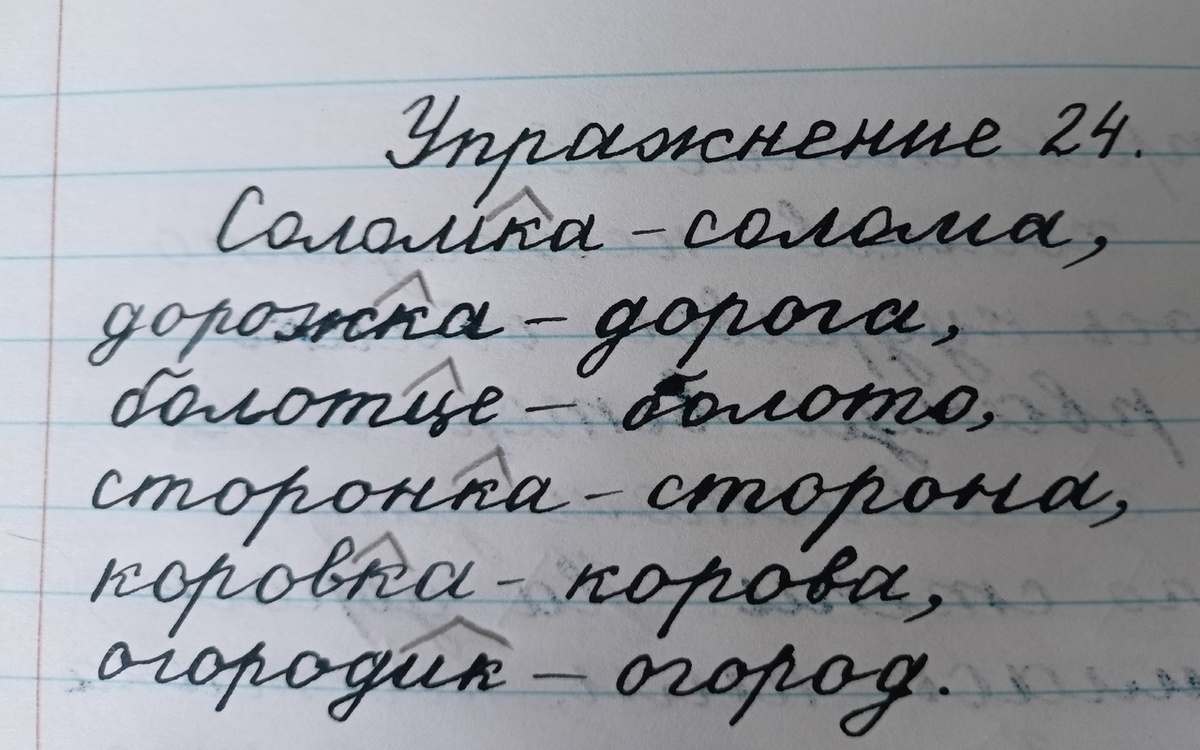 Упражнение 24.
Соломка - солома,
дорожка - дорога,
болотце - болото,
сторонка - сторона,
коровка - корова,
огородик - огород.